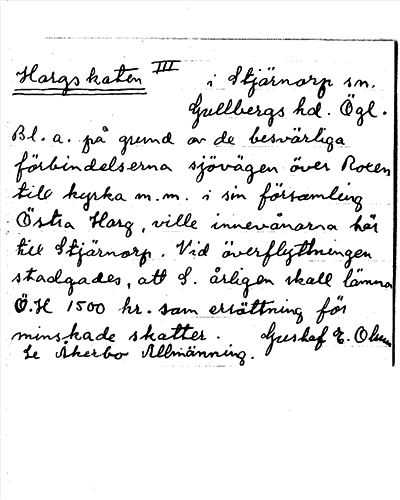 Hargskaten III i Stjärnorp sn.
Gullbergs hd. Ögl.
Bl. a. på grund av de besvärliga
förbindelserna sjövägen över Roxen
till kyrka m.m. i sin församling
Östra Harg, ville innevånarna här
till Stjärnorp. Vid överflyttningen
stadgades, att S. årligen skall lämna
Ö.H 1500 kr. som ersättning för
minskade skatter. Gustaf E. Olsson
Se Åkerbo Allmänning.